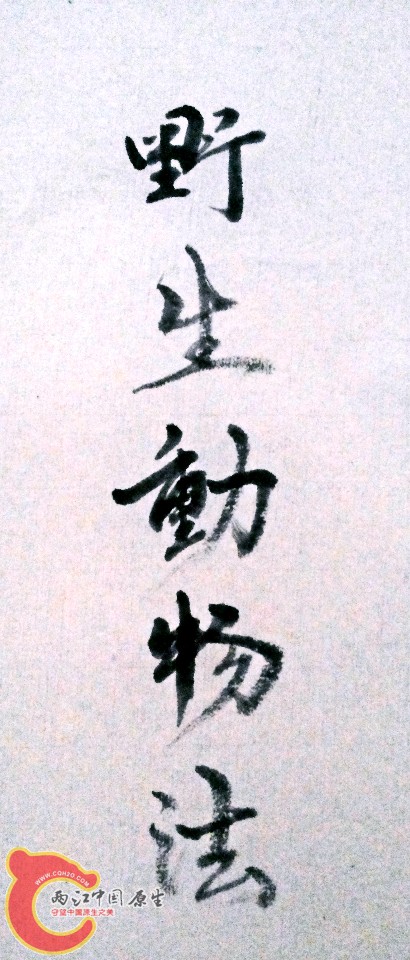 野生動物法
WWW.CQH2O.COM
两江中国 原生
守望中国原生之美